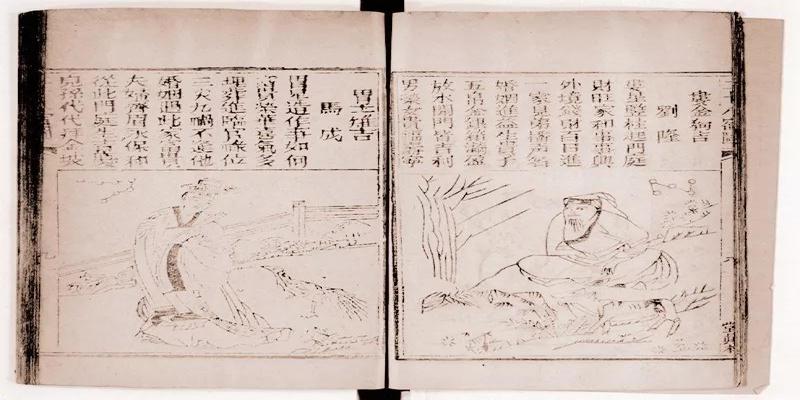 婁金狗吉
劉隆
婁星豎柱起門庭
財旺家和事事興
外境錢財百日進
一家兄弟播聲名
婚姻進益生貴子
玉帛金銀箱滿盈
放水開門皆吉利
男榮女貴壽康寧
胃土雉吉
馬成
胃星造作事如何
富貴榮華喜氣多
埋葬進臨官祿位
三灾九禍不逢他
婚姻遇此家富貴
夫婦齊眉永保和
從此門庭生吉慶
兒孫代代拜金坡